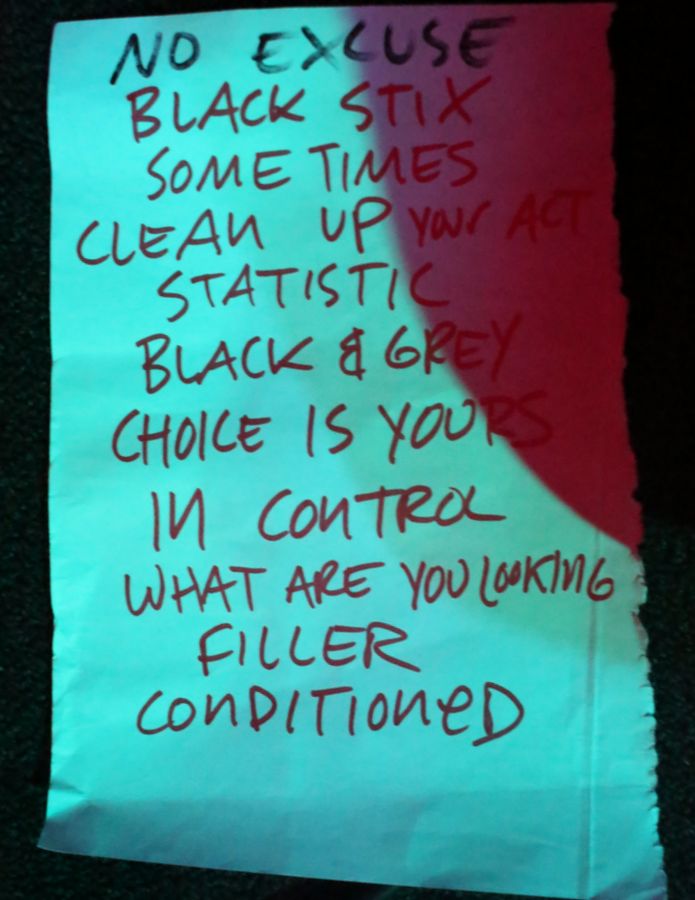 NO EXCUSE
BLACK STIX
SOMETIMES
CLEAN UP YOUR ACT
STATISTIC
BLACK & GREY
CHOICE IS YOURS
IN CONTROL
WHAT ARE YOU LOOKING
FILLER
CONDITIONED